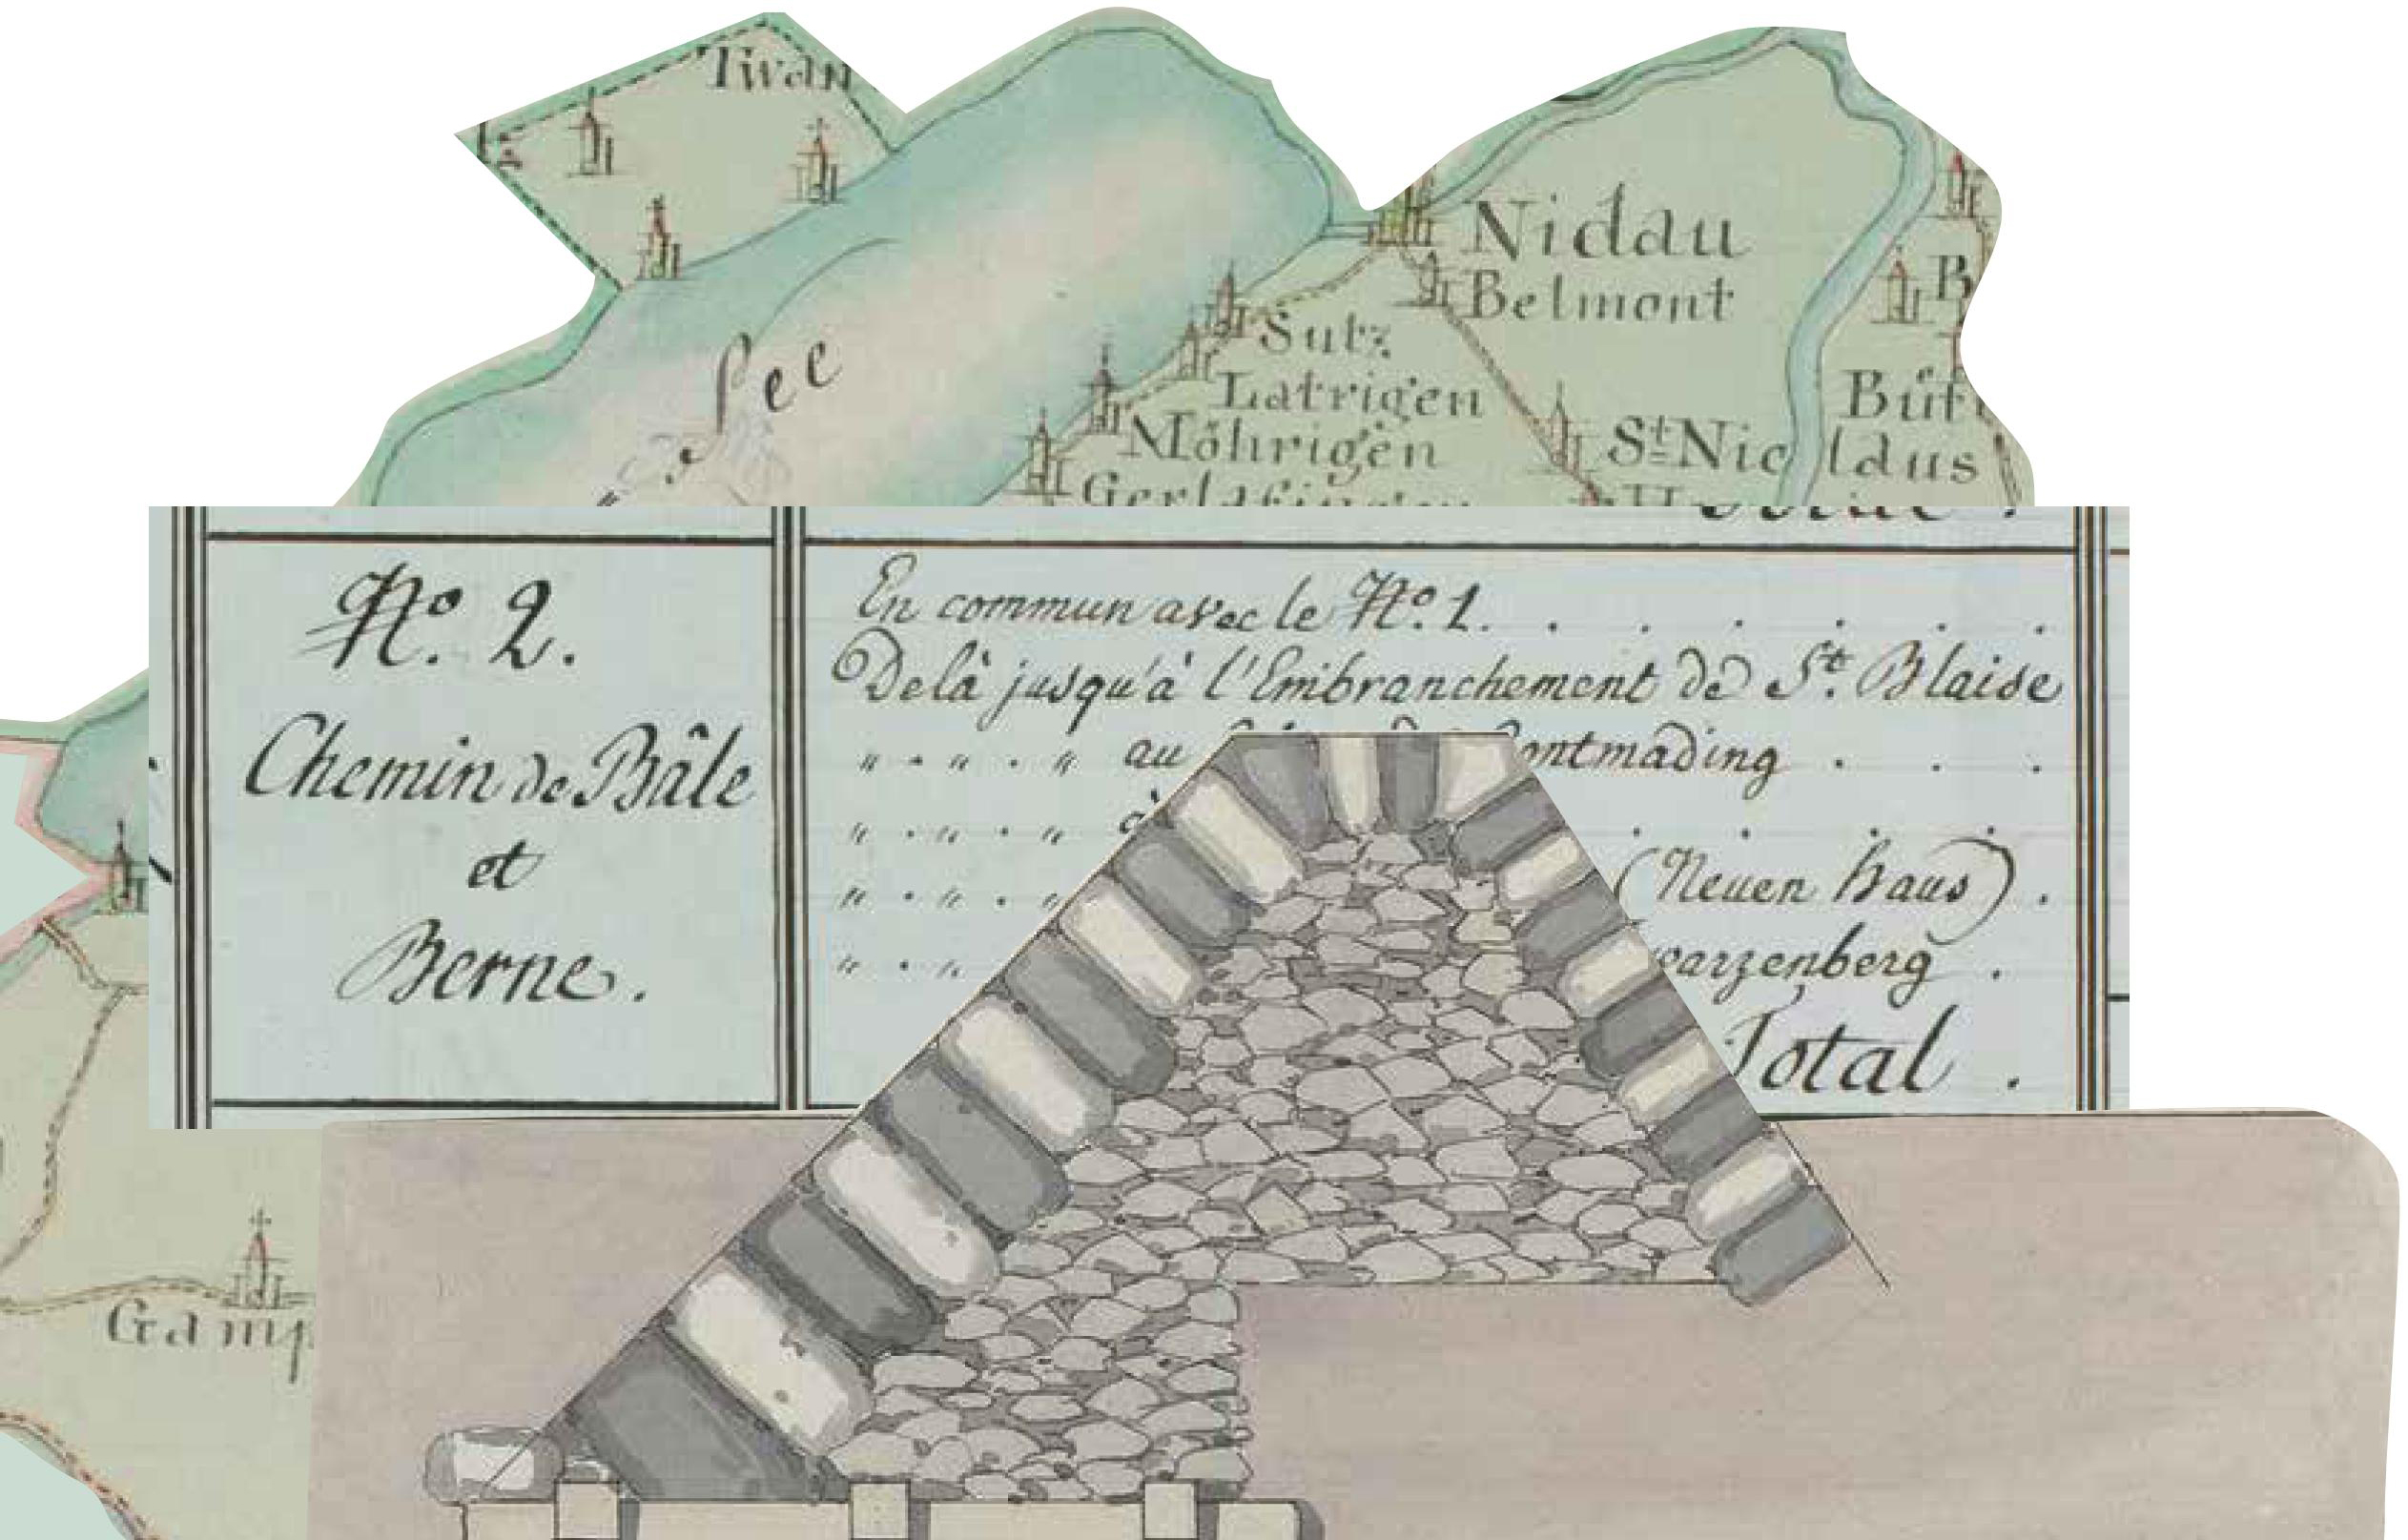 Twan
Nidau
Belmont
B
See
Sutz
Latrigen
Büt
Möhrigen
St Niclaus
Gerlafingen
No. 2.
Chemin de Bâle
et
Berne.
En commun avec le No. 1. . . . . . .
Delà jusqu'à l'Embranchement de St. Blaise
" . " . " au ontmading . . .
" . " . " à . . . .
" . " . " (Neuen Haus) .
" . " warzenberg .
Total .
Gamp